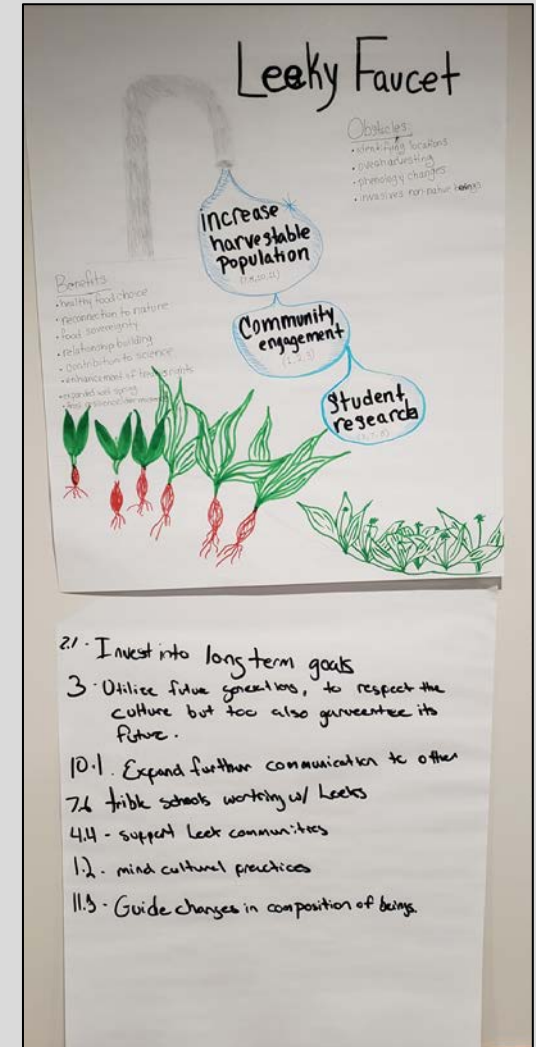 Leeky Faucet
Obstacles:
• identifying locations
• overharvesting
• phenology changes
• invasives non-native beings
increase
harvestable
population
Community
engagement
(1, 2, 3)
Student
research
Benefits
• healthy food choice
• reconnection to nature
• food sovereignty
• relationship building
• contribution to science
• enhancement of treaty rights
2.1 - Invest into long term goals
3 - Utilize future generations, to respect the
culture but too also garuentee its
future.
10.1. Expand further communication to other
7.6 trible schools working w/ Leeks
4.4 - support Leek communities
1.2 - mind cultural practices
11.3 - Guide changes in composition of beings.